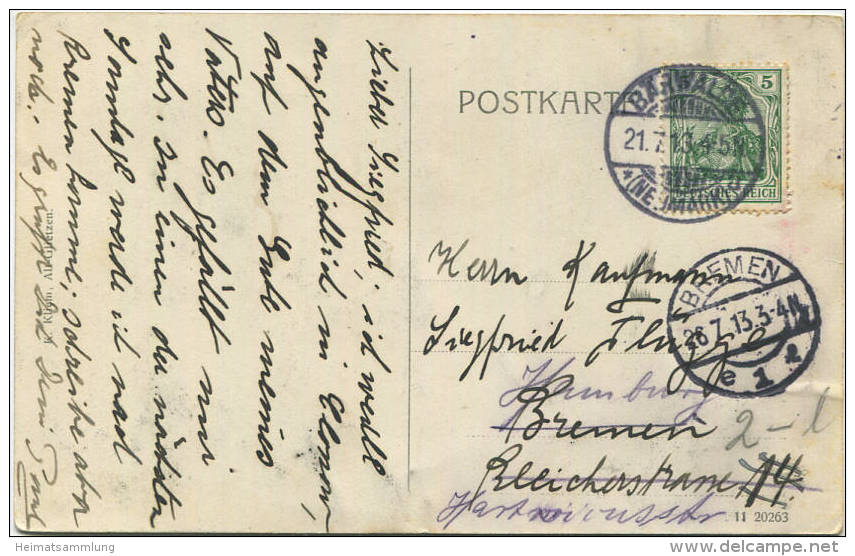 Lieber Siegfried, ich weile
augenblicklich in Clossow,
auf dem Gute meines
Vaters. Es gefällt mir
sehr. In einen der nächsten
Sonntage werde ich nach
Bremen kommen, schreibe aber
noch. Es grüßt Dich Dein Paul
POSTKARTE
5
DEUTSCHES REICH
BÄRWALDE
21.7.13.4-5N
*(NEUMARK)
BREMEN
26.7.13.3-4N
e 1 e
Herrn Kaufmann
Siegfried Flügge
Hamburg
Bremen
2-1
Bleicherstrasse 14.
11 20263
Heimatsammlung
delcampe.net